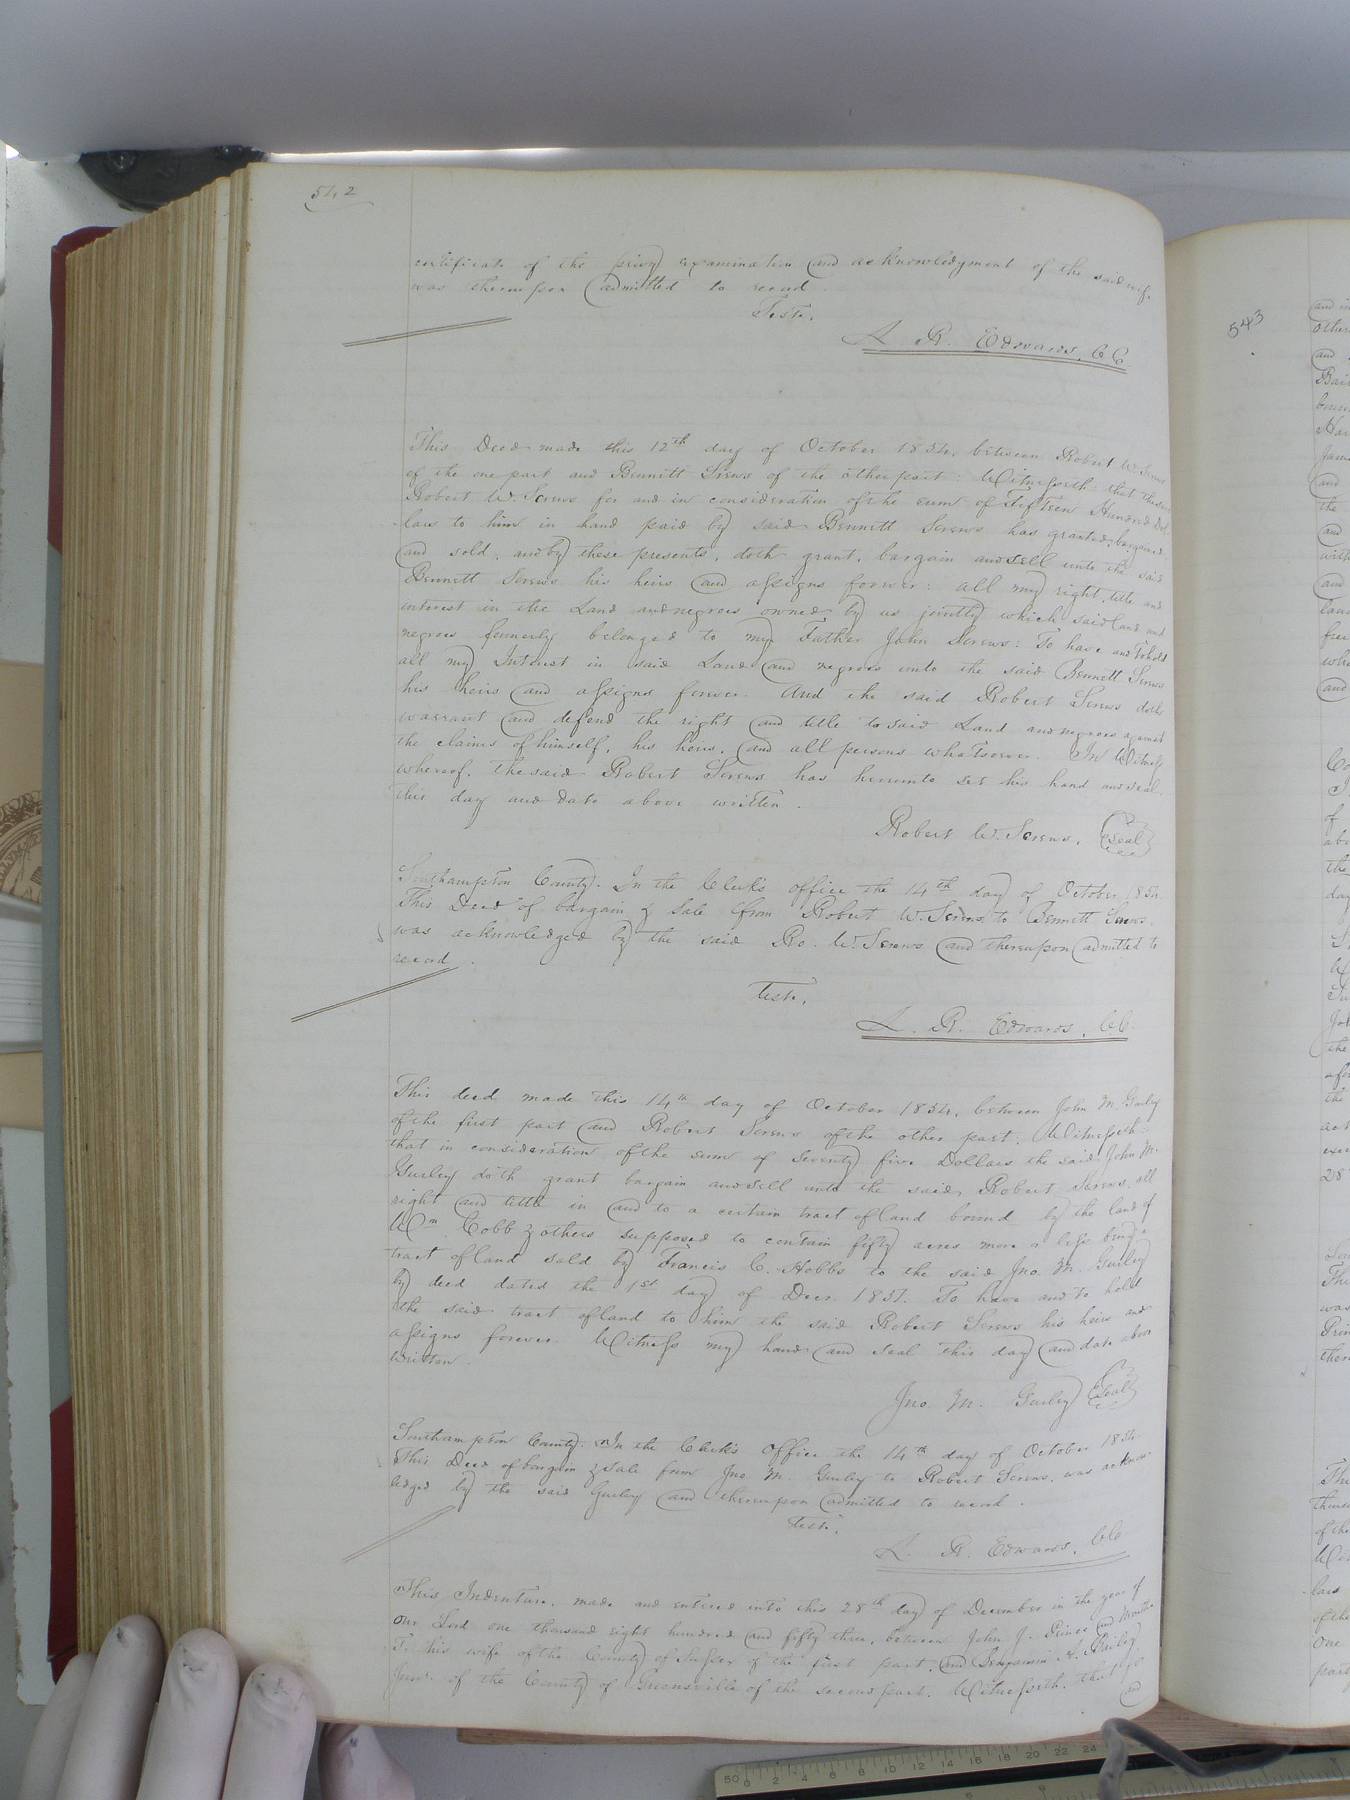 542
certificate of the privy examination and acknowledgment of the said wife
was thereupon admitted to record.
Teste.
L. R. Edwards, C.C.
This Deed made this 12th day of October 1854, between Robert W. Screws
of the one part and Bennett Screws of the other part: Witnesseth: that the said
Robert W. Screws for and in consideration of the sum of Fifteen Hundred Dol-
lars to him in hand paid by said Bennett Screws has granted, bargained
and sold, and by these presents, doth grant, bargain and sell unto the said
Bennett Screws his heirs and assigns forever: all my right, title and
interest in the Land and negroes owned by us jointly which said land and
negroes formerly belonged to my Father John Screws: To have and to hold
all my Interest in said Land and negroes unto the said Bennett Screws
his heirs and assigns forever. And the said Robert Screws doth
warrant and defend the right and title to said Land and negroes against
the claims of himself, his heirs, and all persons whatsoever. In Witness
whereof, the said Robert Screws has hereunto set his hand and seal
this day and date above written.
Robert W. Screws, Seal
Southampton County. In the Clerk's office the 14th day of October 1854
This Deed of bargain & sale from Robert W. Screws to Bennett Screws
was acknowledged by the said Ro. W. Screws and thereupon admitted to
record.
Teste.
L. R. Edwards, C.C.
This deed made this 14th day of October 1854, between John M. Gurley
of the first part and Robert Screws of the other part: Witnesseth
that in consideration of the sum of Seventy five Dollars the said John M.
Gurley doth grant bargain and sell unto the said Robert Screws, all
right and tittle in and to a certain tract of land bound by the land of
Wm. Cobb & others supposed to contain fifty acres more or less being a
tract of land sold by Francis C. Hobbs to the said Jno. M. Gurley
by deed dated the 1st day of Decr. 1851. To have and to hold
the said tract of land to him the said Robert Screws his heirs and
assigns forever. Witness my hand and seal this day and date above
written.
Jno. M. Gurley Seal
Southampton County. In the Clerk's Office the 14th day of October 1854
This Deed of bargain & sale from Jno. M. Gurley to Robert Screws, was acknow-
ledged by the said Gurley and thereupon admitted to record.
Teste.
L. R. Edwards, C.C.
This Indenture, made and entered into this 28th day of December in the year of
our Lord one thousand eight hundred and fifty three, between John J. Prince and
his wife of the County of Sussex of the first part, and Benjamin A. Bailey
Junr. of the County of Greensville of the second part. Witnesseth, that
and
543